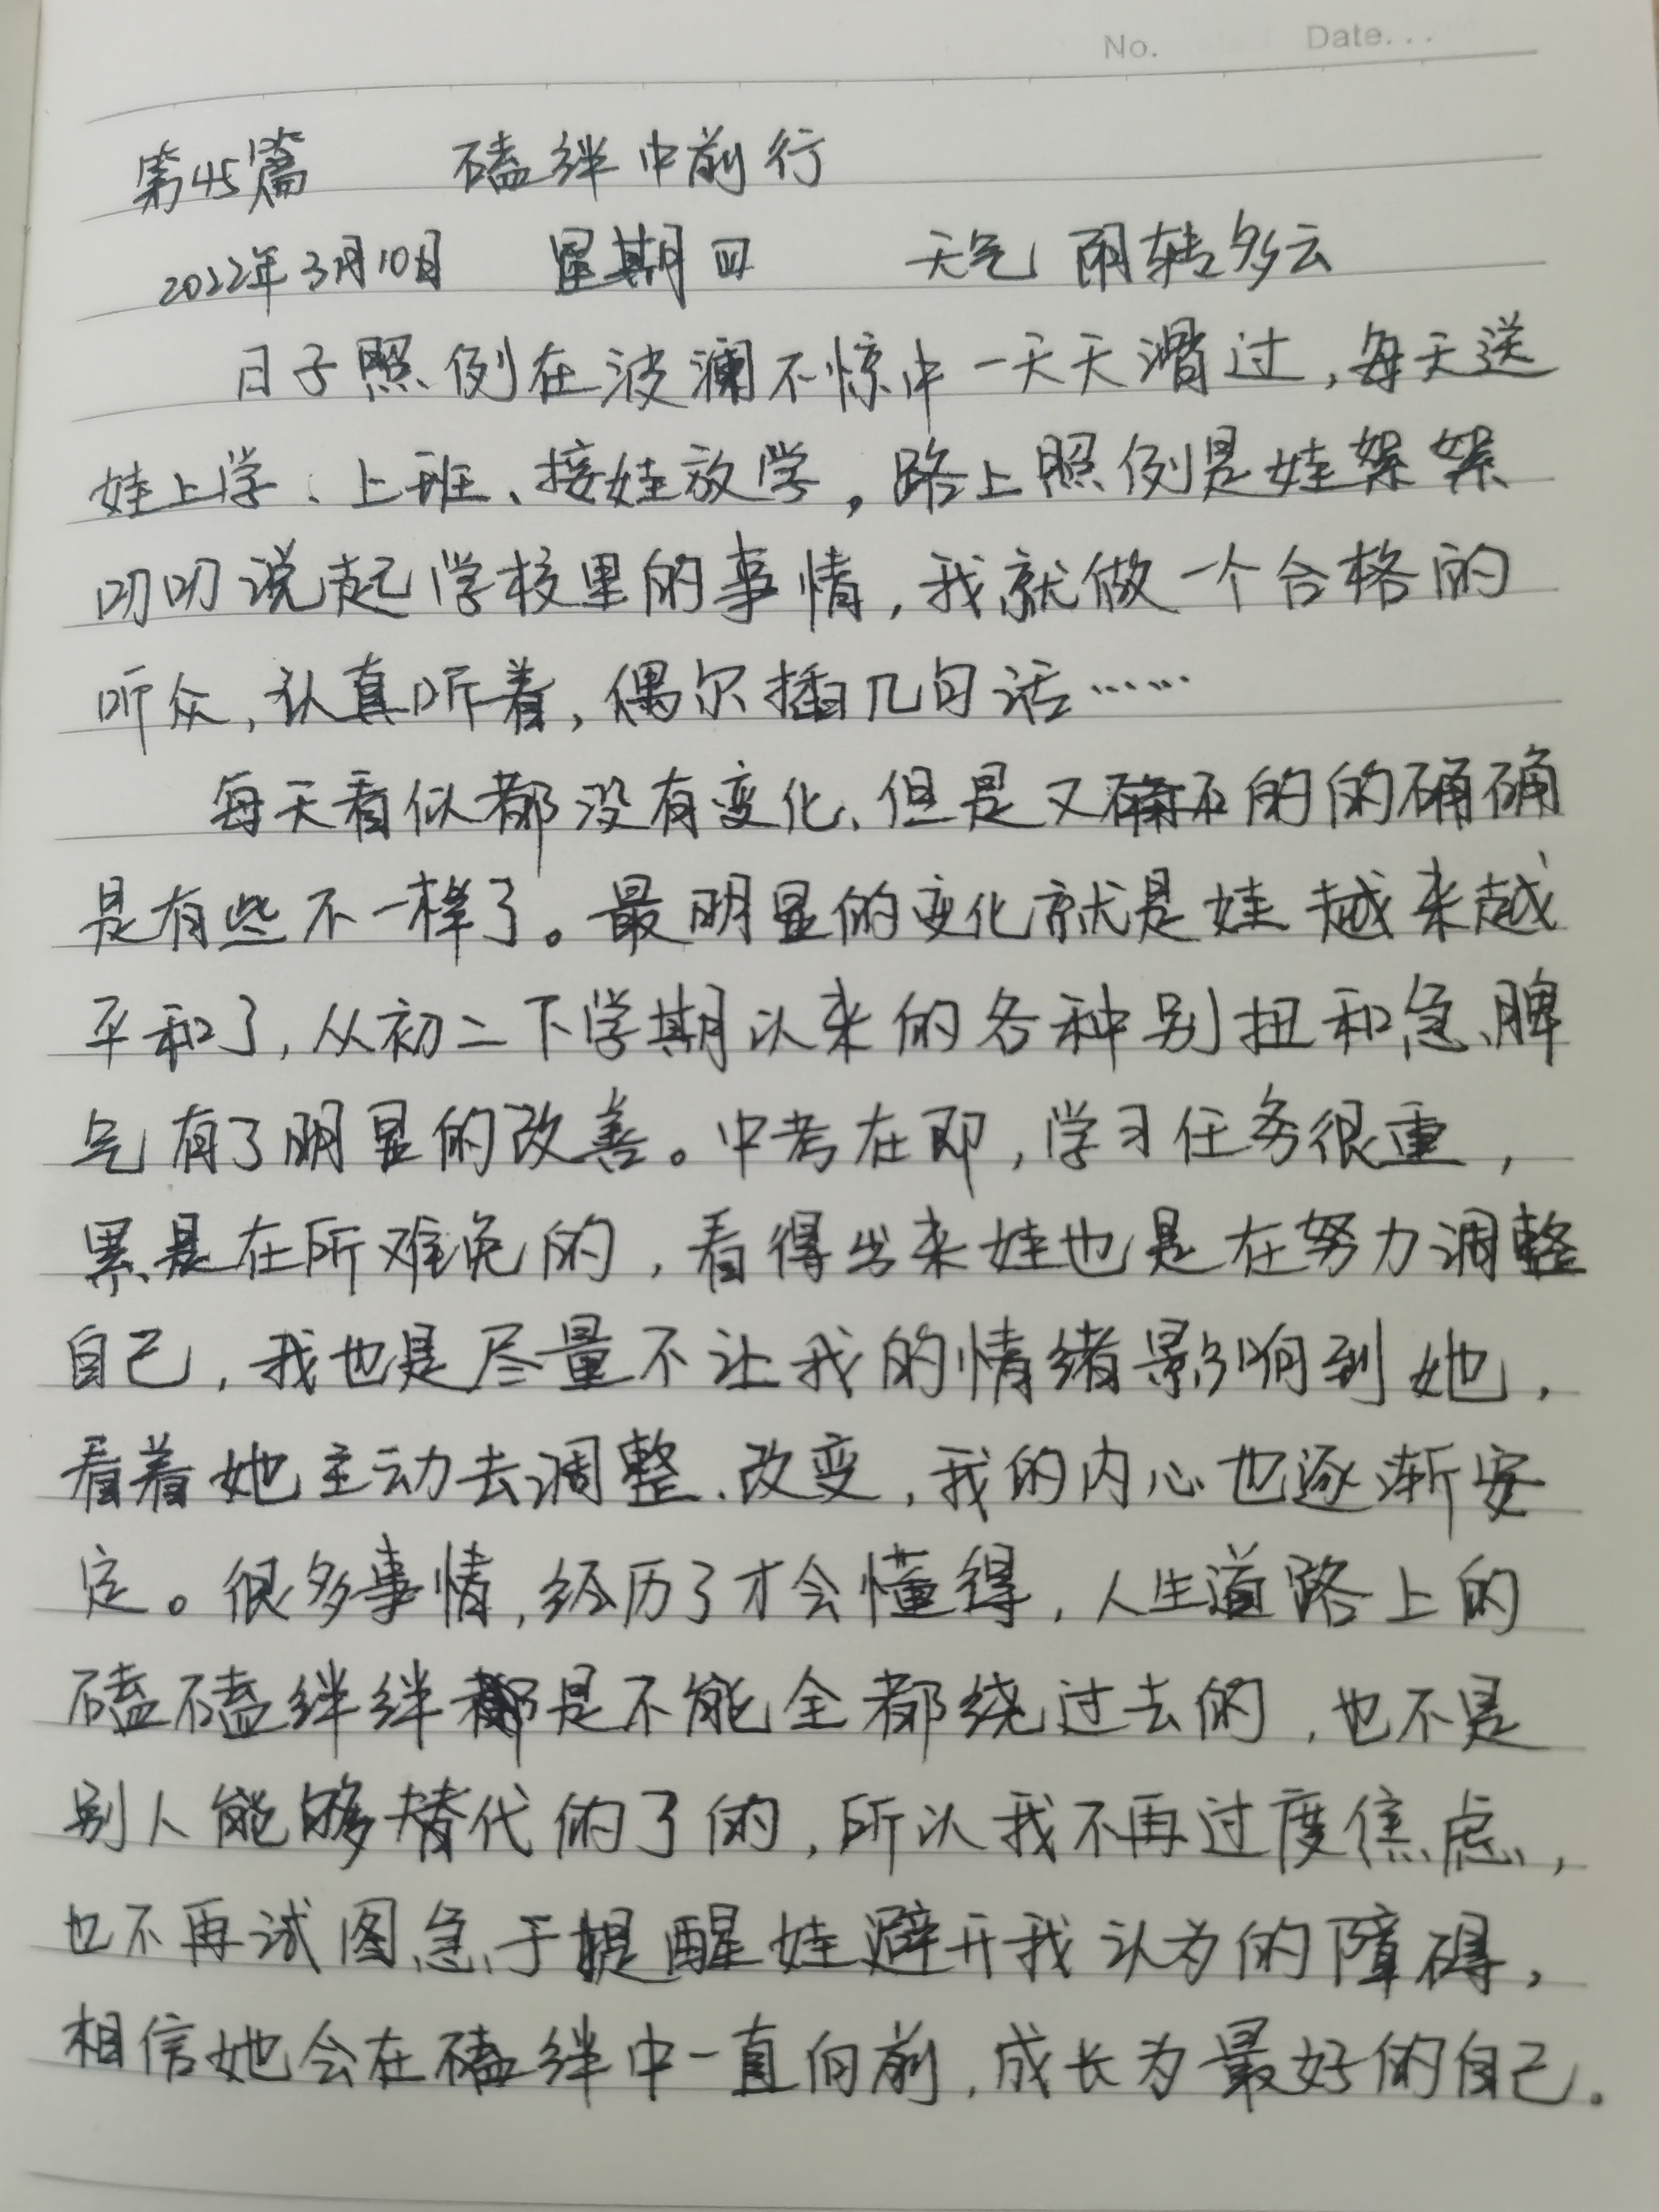 No. Date...
第45篇 磕绊中前行
2022年3月10日 星期四 天气 阴转多云
日子照例在波澜不惊中一天天溜过,每天送
娃上学、上班、接娃放学,路上照例是娃絮絮
叨叨说起学校里的事情,我就做一个合格的
听众,认真听着,偶尔插几句话……
每天看似都没有变化、但是又的的确确
是有些不一样了。最明显的变化就是娃越来越
平和了,从初二下学期以来的各种别扭和急脾
气有了明显的改善。中考在即,学习任务很重,
累是在所难免的,看得出来娃也是在努力调整
自己,我也是尽量不让我的情绪影响到她,
看着她主动去调整、改变,我的内心也逐渐安
定。很多事情,经历了才会懂得,人生道路上的
磕磕绊绊是不能全都绕过去的,也不是
别人能够替代的了的,所以我不再过度焦虑,
也不再试图急于提醒娃避开我认为的障碍,
相信她会在磕绊中一直向前,成长为最好的自己。